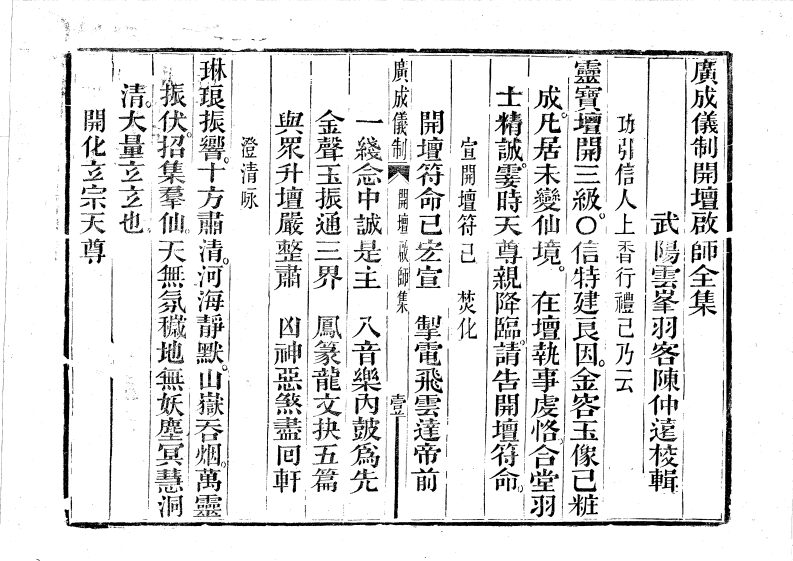 廣成儀制開壇啟師全集
武陽雲峯羽客陳仲遠校輯
功引信人上香行禮已乃云
靈寶壇開三級〇信特建良因。金容玉像已粧
成。凡居未變仙境。在壇執事虔恪。合堂羽
士精誠。霎時天尊親降臨。請告開壇符命。
宣開壇符已 焚化
開壇符命已宏宣 掣電飛雲達帝前
一綫念中誠是主 八音樂內鼓爲先
金聲玉振通三界 鳳篆龍文抉五篇
與眾升壇嚴整肅 凶神惡煞盡回軒
廣成儀制 開壇啟師集 壹
澄清咏
琳琅振響。十方肅清。河海靜默。山嶽吞烟。萬靈
振伏。招集羣仙。天無氛穢。地無妖塵。冥慧洞
清。大量玄玄也
開化立宗天尊